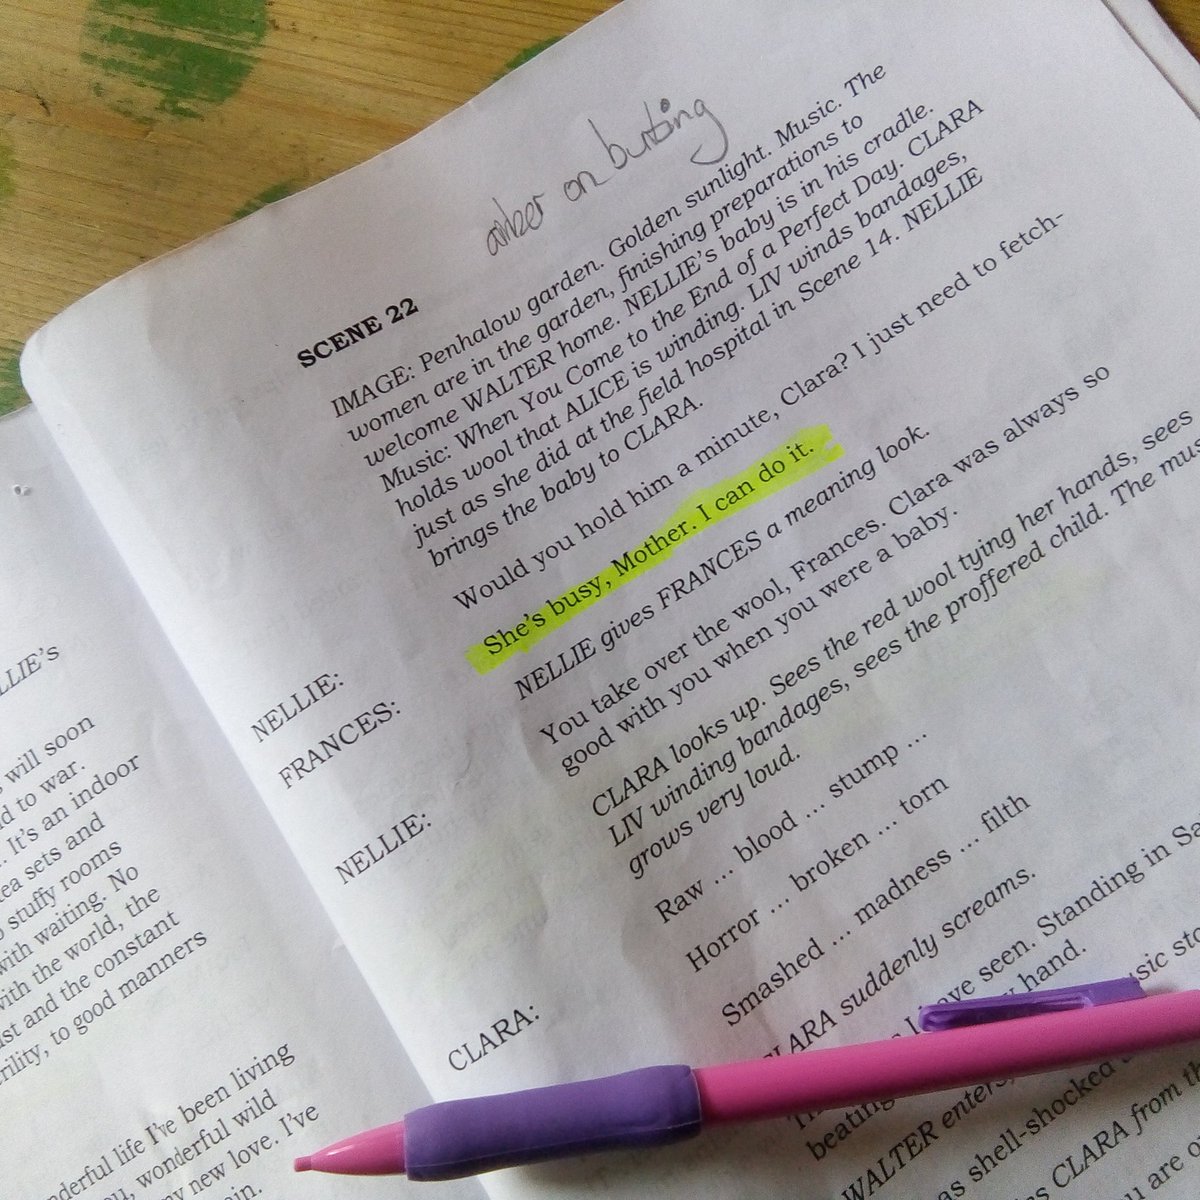 will soon
to war.
It's an indoor
sets and
stuffy rooms
with waiting. No
with the world, the
and the constant
to good manners
life I've been living
wonderful wild
new love. I've
amber on bunting
SCENE 22
IMAGE: Penhalow garden. Golden sunlight. Music. The
women are in the garden, finishing preparations to
welcome WALTER home. NELLIE's baby is in his cradle.
Music: When You Come to the End of a Perfect Day. CLARA
holds wool that ALICE is winding. LIV winds bandages,
just as she did at the field hospital in Scene 14. NELLIE
brings the baby to CLARA.
NELLIE: Would you hold him a minute, Clara? I just need to fetch-
FRANCES: She's busy, Mother. I can do it.
NELLIE gives FRANCES a meaning look.
NELLIE: You take over the wool, Frances. Clara was always so
good with you when you were a baby.
CLARA looks up. Sees the red wool tying her hands, sees
LIV winding bandages, sees the proffered child. The
grows very loud.
CLARA: Raw ... blood ... stump ...
Horror ... broken ... torn
Smashed ... madness ... filth
CLARA suddenly screams.
I have seen. Standing in
hand.
beating
WALTER enters,
as shell-shocked
CLARA from
are